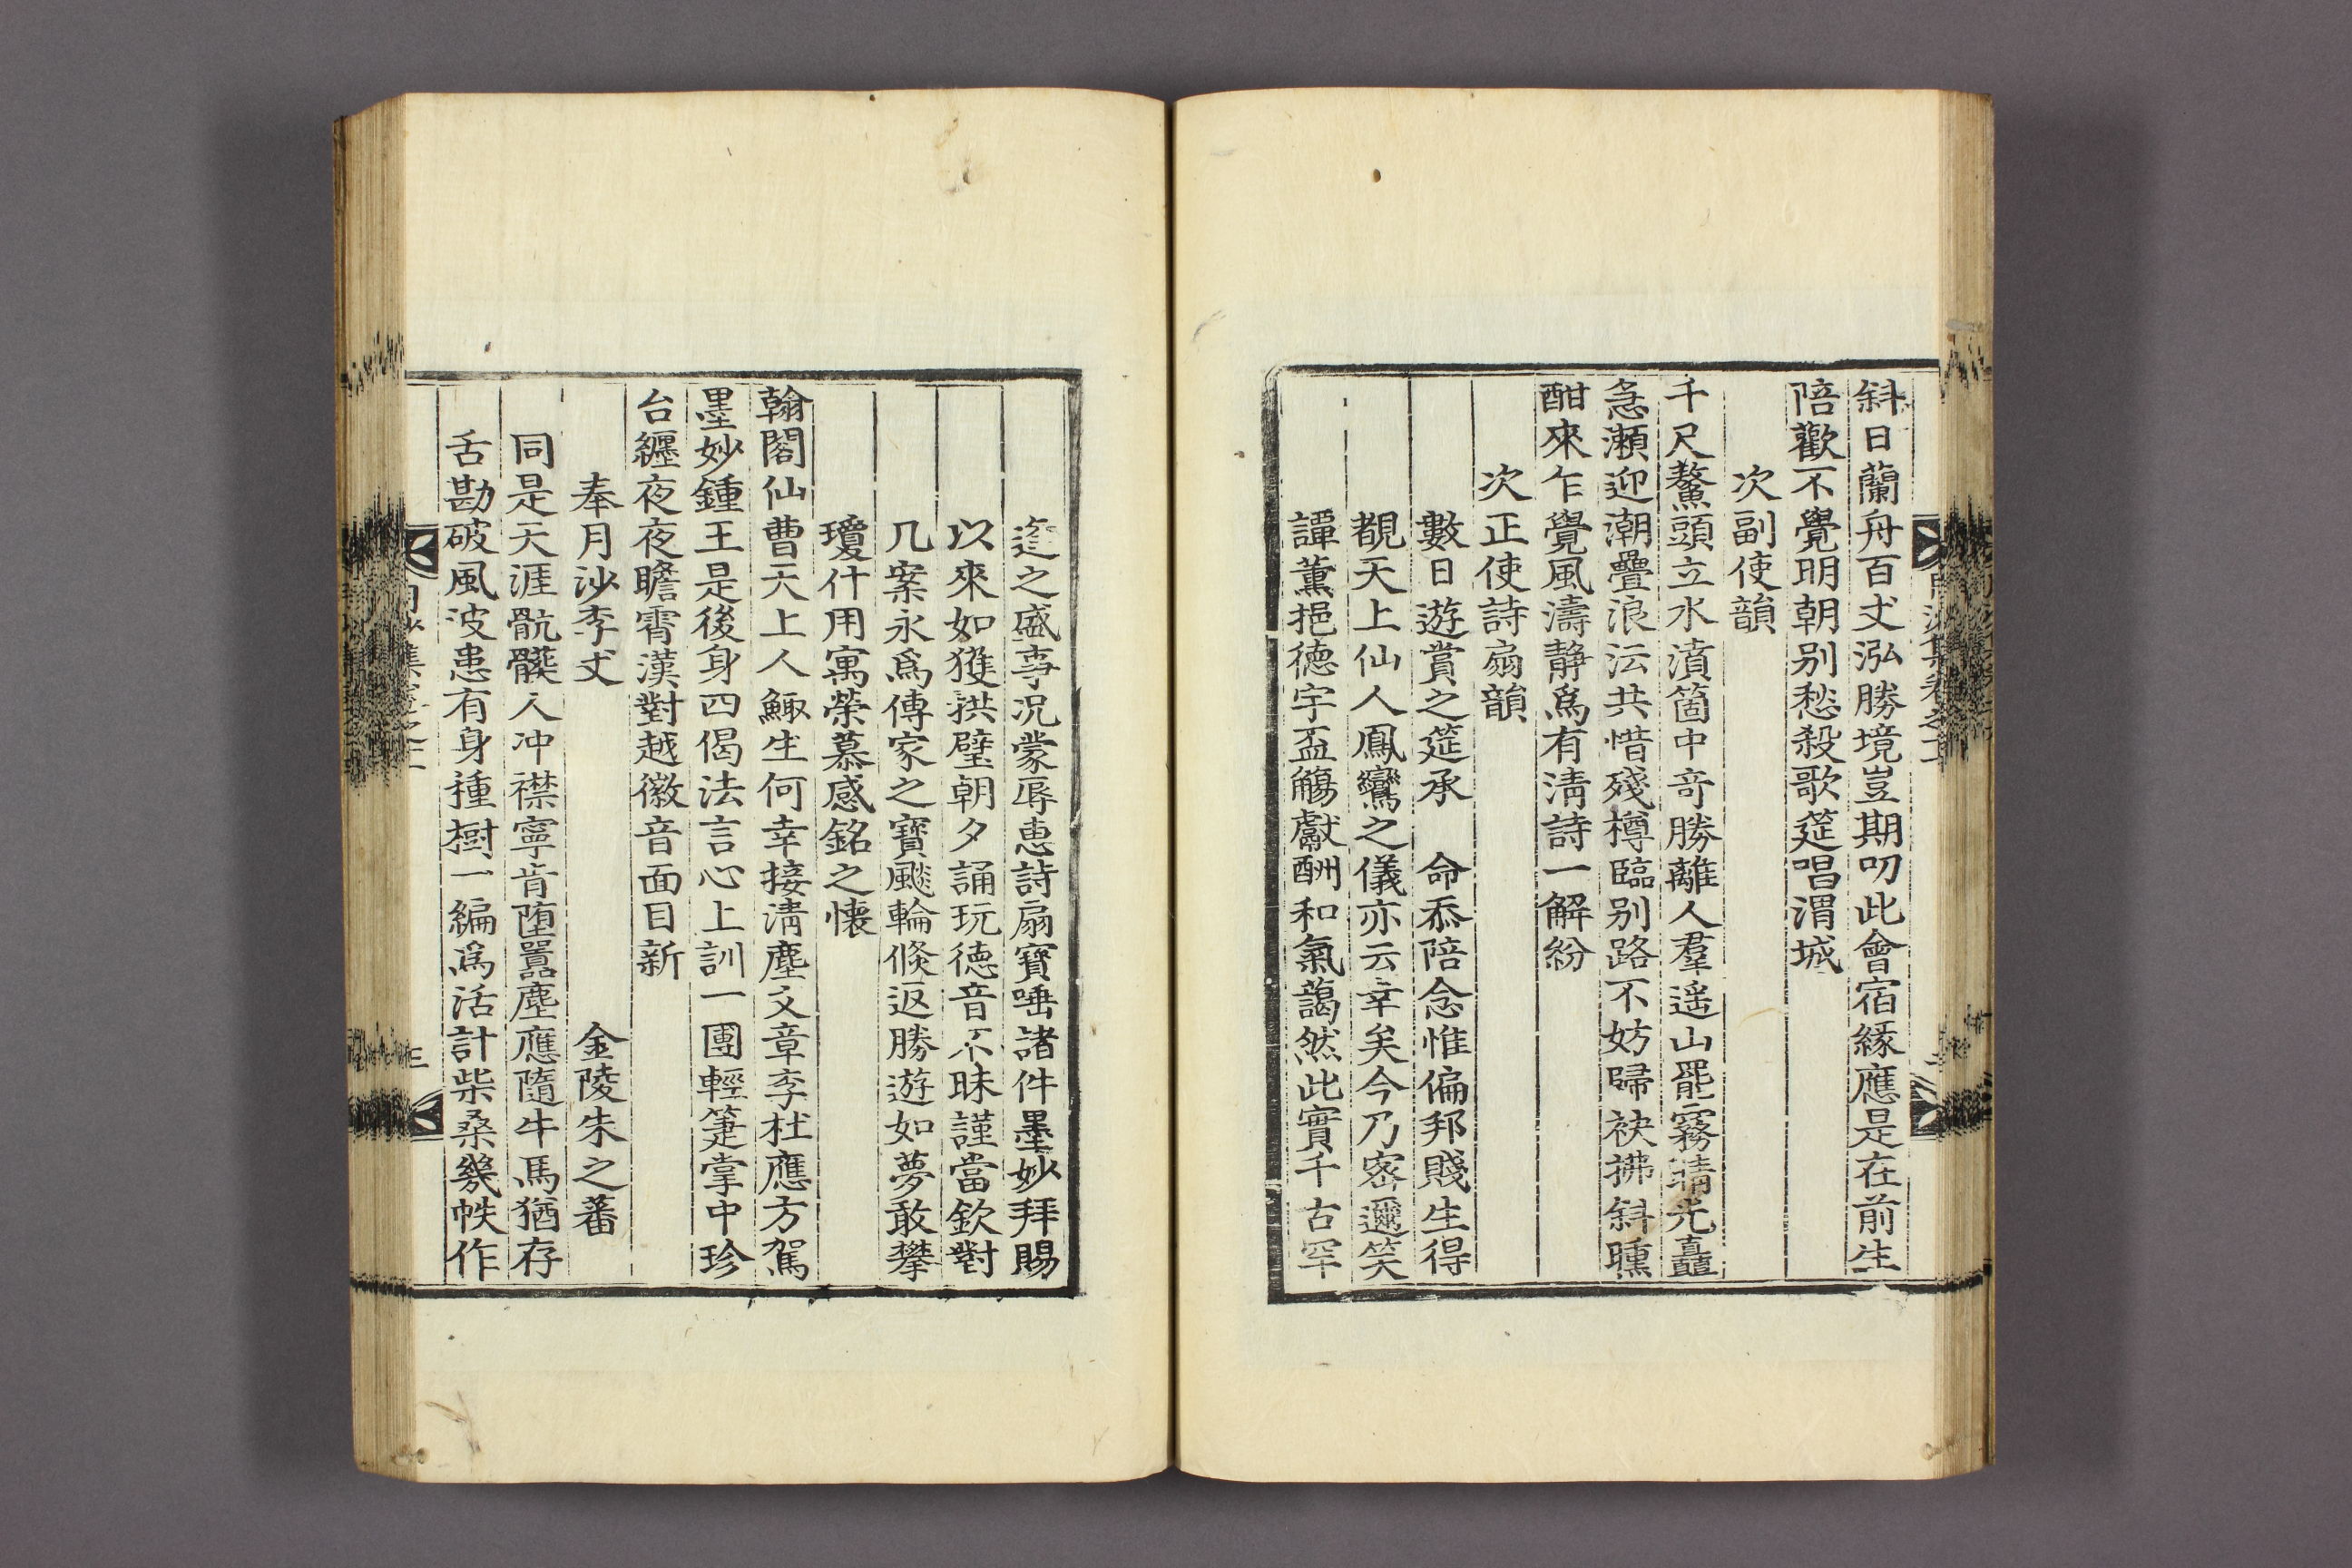 斜日蘭舟百丈泓勝境豈期叨此會宿緣應是在前生
陪歡不覺明朝別愁殺歌筵唱渭城
次副使韻
千尺鰲頭立水濆箇中奇勝離人羣遥山罷霧請先矗
急瀬迎潮疊浪沄共惜殘樽臨别路不妨歸袂拂斜曛
酣來乍覺風濤靜爲有淸詩一解紛
次正使詩扇韻
數日遊賞之筵承　命忝陪念惟偏邦賤生得
覩天上仙人鳳鸞之儀亦云幸矣今乃密邇笑
譚薰挹德宇盃觴獻酬和氣藹然此實千古罕
逢之盛事况蒙辱惠詩扇寶唾諸件墨妙拜賜
以來如獲拱璧朝夕誦玩德音不昧謹當欽對
几案永爲傳家之寶颷輪倐返勝遊如夢敢攀
瓊什用寓榮慕感銘之懷
翰閣仙曹天上人鯫生何幸接淸塵文章李杜應方駕
墨妙鍾王是後身四偈法言心上訓一團輕箑掌中珍
台纒夜夜瞻霄漢對越徽音面目新
奉月沙李丈　金陵朱之蕃
同是天涯骯髒人冲襟寧肯堕嚣塵應隨牛馬猶存
舌勘破風波患有身種樹一編爲活計柴桑幾帙作